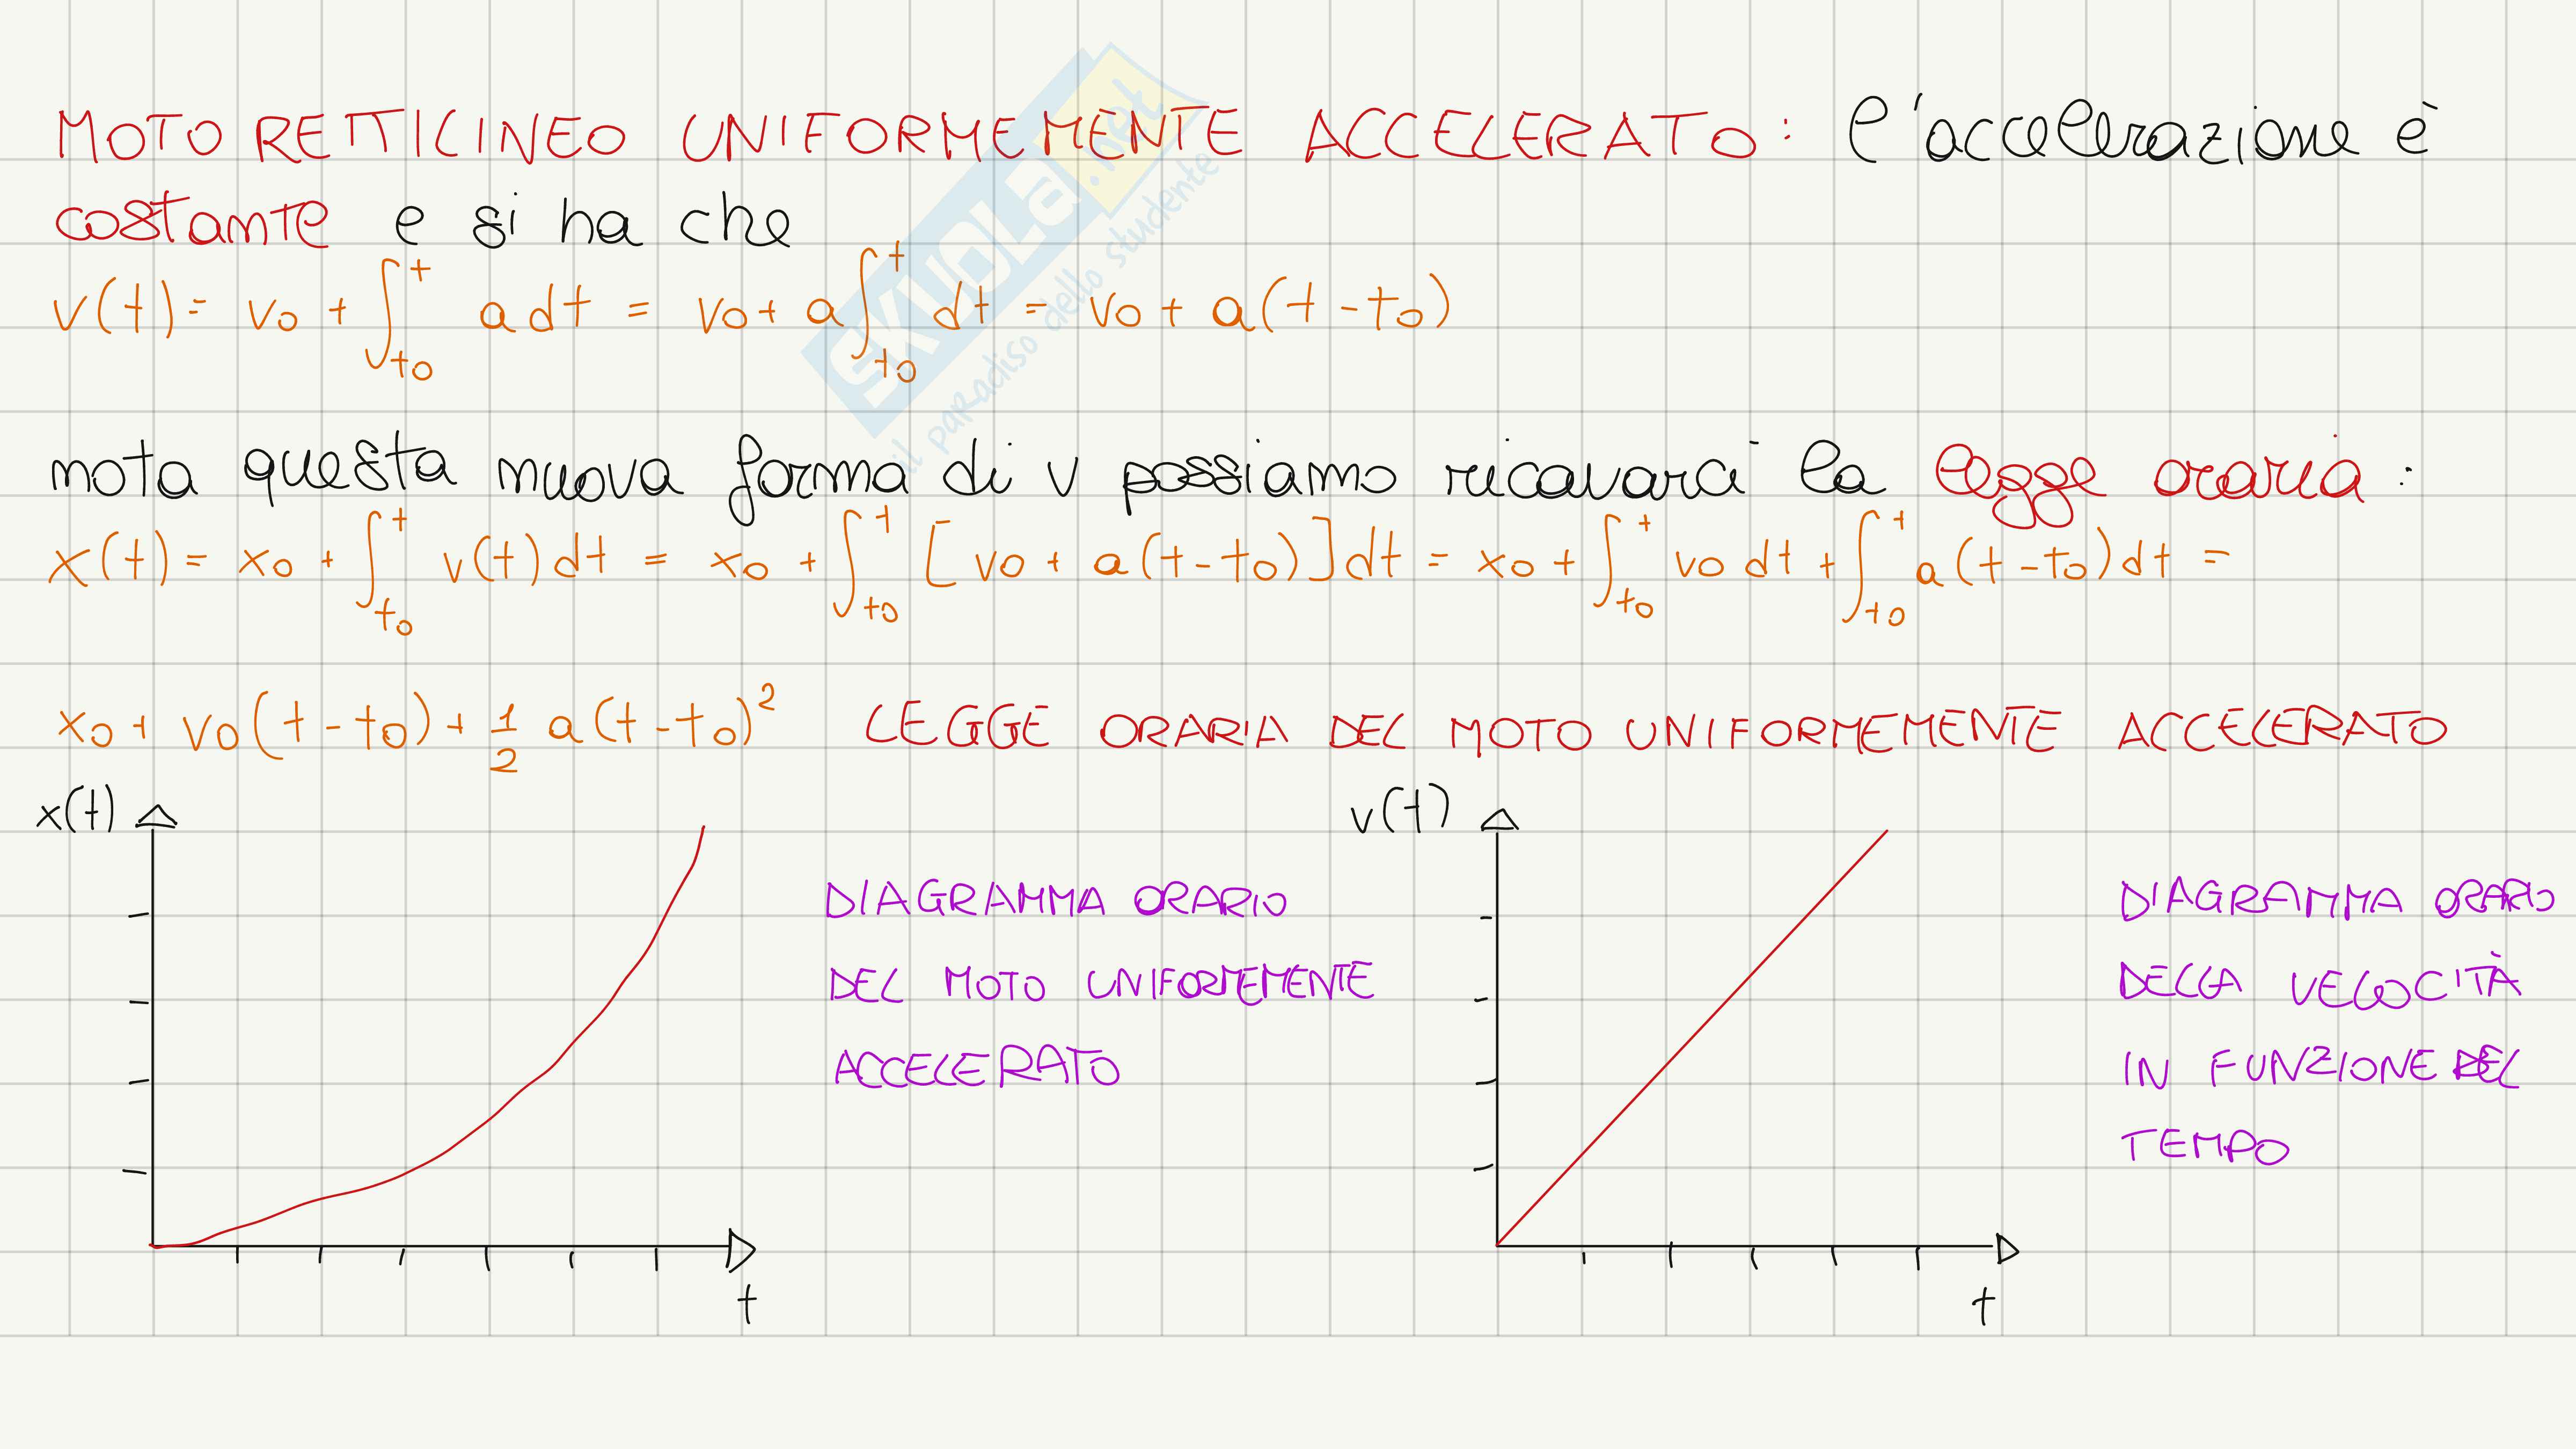 MOTO RETTILINEO UNIFORMEMENTE ACCELERATO: l'accelerazione è
costante e si ha che
v(t) = v0 + ∫_{t0}^{t} a dt = v0 + a ∫_{t0}^{t} dt = v0 + a(t - t0)
nota questa nuova forma di v possiamo ricavarci la legge oraria:
x(t) = x0 + ∫_{t0}^{t} v(t) dt = x0 + ∫_{t0}^{t} [v0 + a(t - t0)] dt = x0 + ∫_{t0}^{t} v0 dt + ∫_{t0}^{t} a(t - t0) dt =
x0 + v0(t - t0) + 1/2 a(t - t0)² LEGGE ORARIA DEL MOTO UNIFORMEMENTE ACCELERATO
x(t)
DIAGRAMMA ORARIO
DEL MOTO UNIFORMEMENTE
ACCELERATO
t
v(t)
DIAGRAMMA ORARIO
DELLA VELOCITÀ
IN FUNZIONE DEL
TEMPO
t
SKUOLA.net
il paradiso dello studente